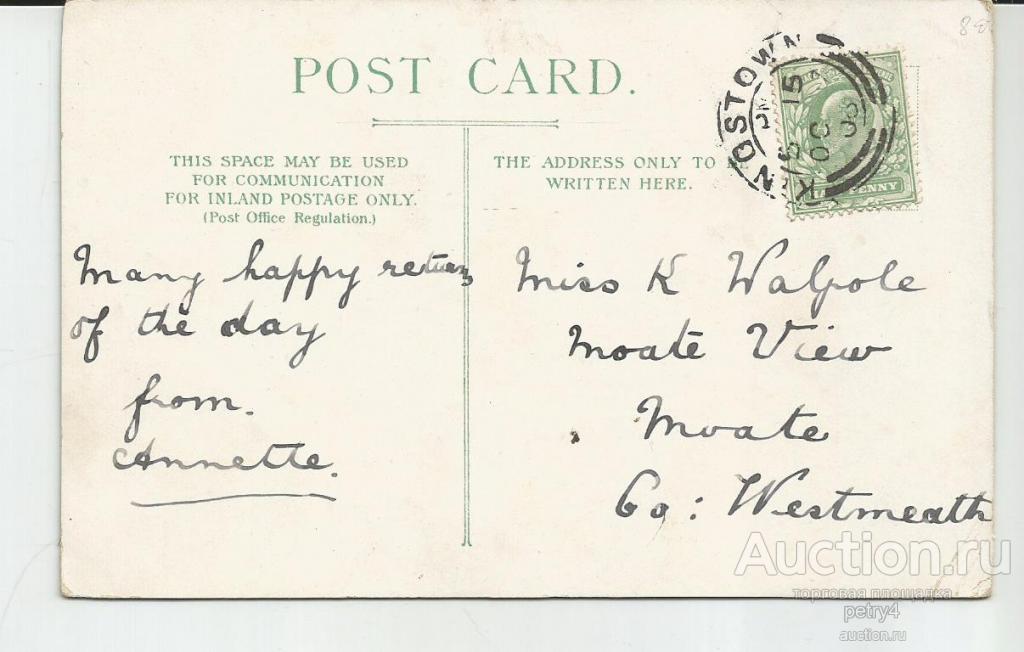 88
POST CARD.
THIS SPACE MAY BE USED
FOR COMMUNICATION
FOR INLAND POSTAGE ONLY.
(Post Office Regulation.)
THE ADDRESS ONLY TO
WRITTEN HERE.
KINGSTOWN
15
OC
PENNY
Many happy returns
of the day
from.
Annette.
Miss K Walpole
Moate View
Moate
Co: Westmeath
Auction.ru
торговая площадка
petry4
auction.ru